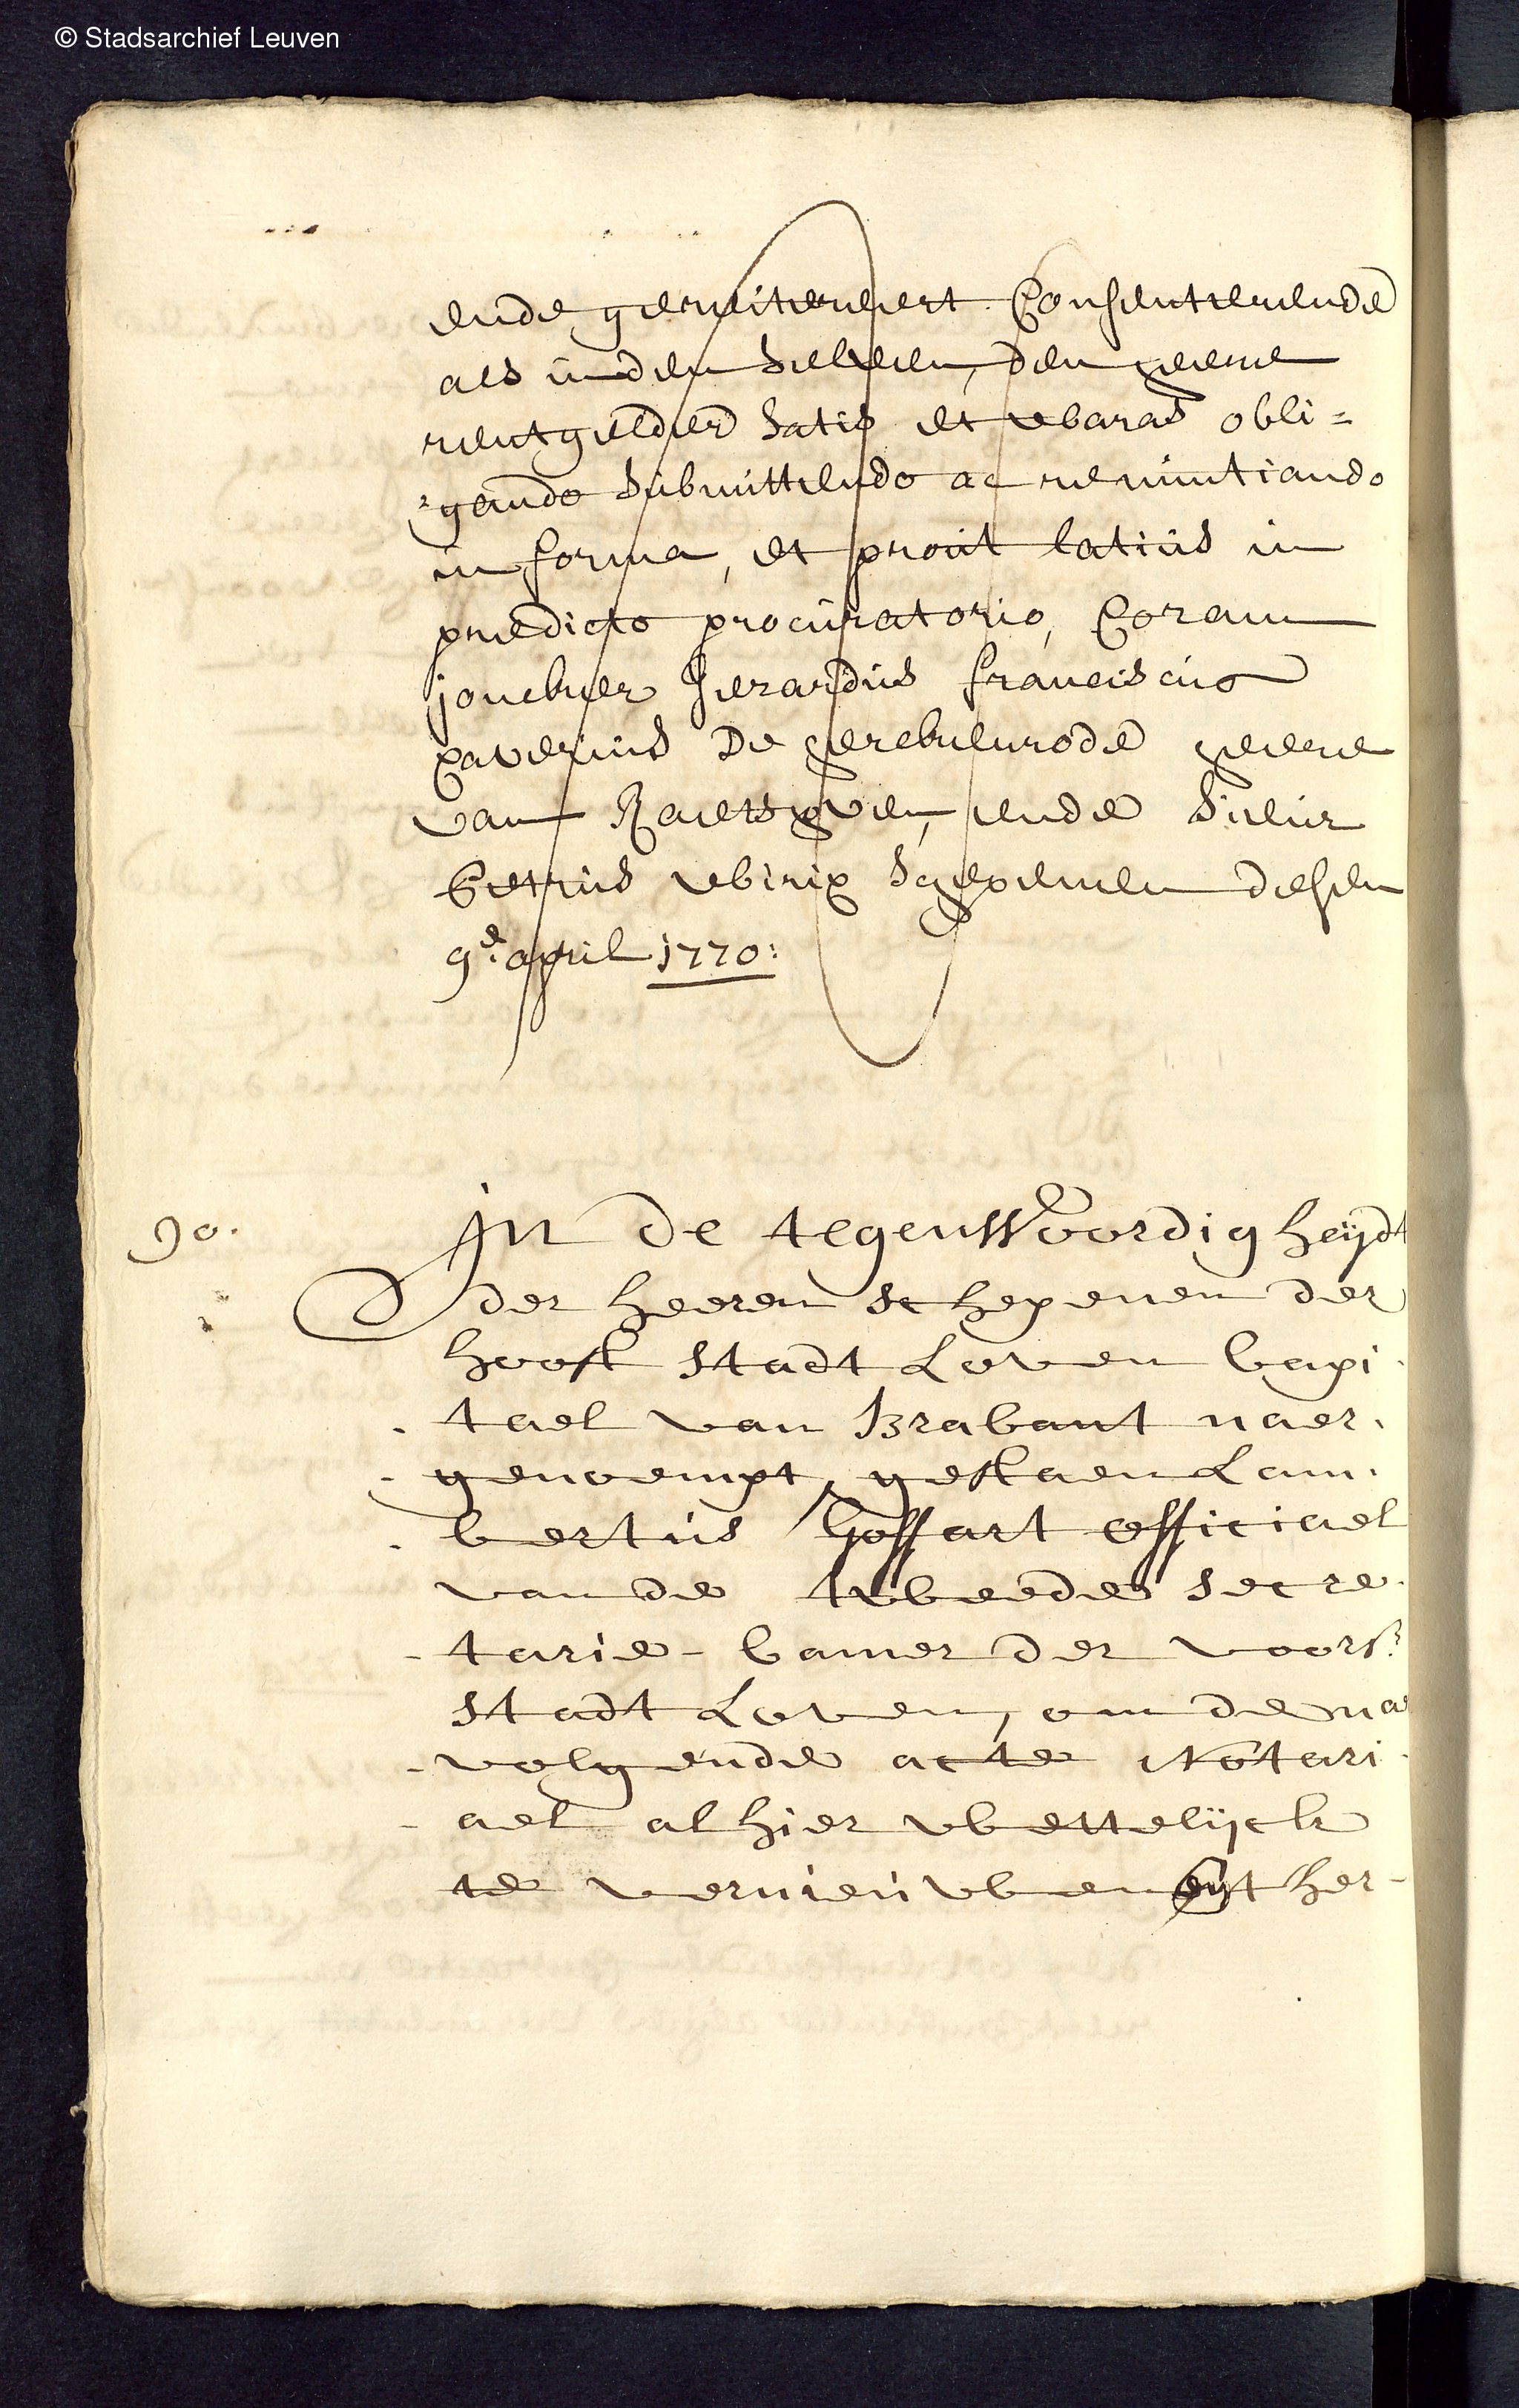 © Stadsarchief Leuven
ende gereitereert Consenterende
als in den selven, den heere
rentgelder satis et waras obli=
=gando submittendo ac renuntiando
in forma, et prout latius in
predicto procuratorio, Coram
jonckher Gerardus franciscus
xaverius De herckenrode heere
van Raetshoven, ende sieur
Petrus wirix schepenen desen
9.e april 1770:
90.
In de tegenWoordigheijdt
der heeren schepenen der
hooft stadt Loven Capi-
-tael van Brabant naer-
-genoempt, gestaen Lam-
-bertus Goffart officiael
van de tweede secre-
-tarie-Camer der voors:
stadt Loven, om de nae
-volgende acte Notari-
-ael alhier wettelijck
te vernieuwen ent her-